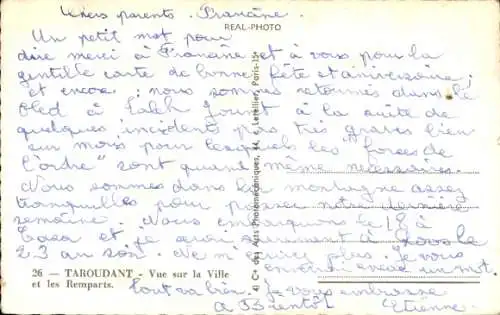 Chers parents. Francine.
REAL-PHOTO
Un petit mot pour
dire merci à Francine et à vous pour la
gentille carte de bonne fête et aniversaire;
et encore: nous sommes retournés dans le
bled à la suite de
quelques incidents pas très graves bien
sur mais pour lesquels les "forces de
l'ordre" sont quand même nécessaires.
Nous sommes dans la montagne assez
tranquilles pour passer notre dernière
semaine. Nous embarquons le 18 à
Casa et je serai surement à le
23 au soir. Ne m'écrivez plus. Je vous
26 - TAROUDANT - Vue sur la Ville
et les Remparts.
enverrai encore un mot.
Tout va bien. Je vous embrasse
A Bientôt Etienne.
4) Cie des Arts Photomécaniques, 44, r. Letellier, Paris-15e